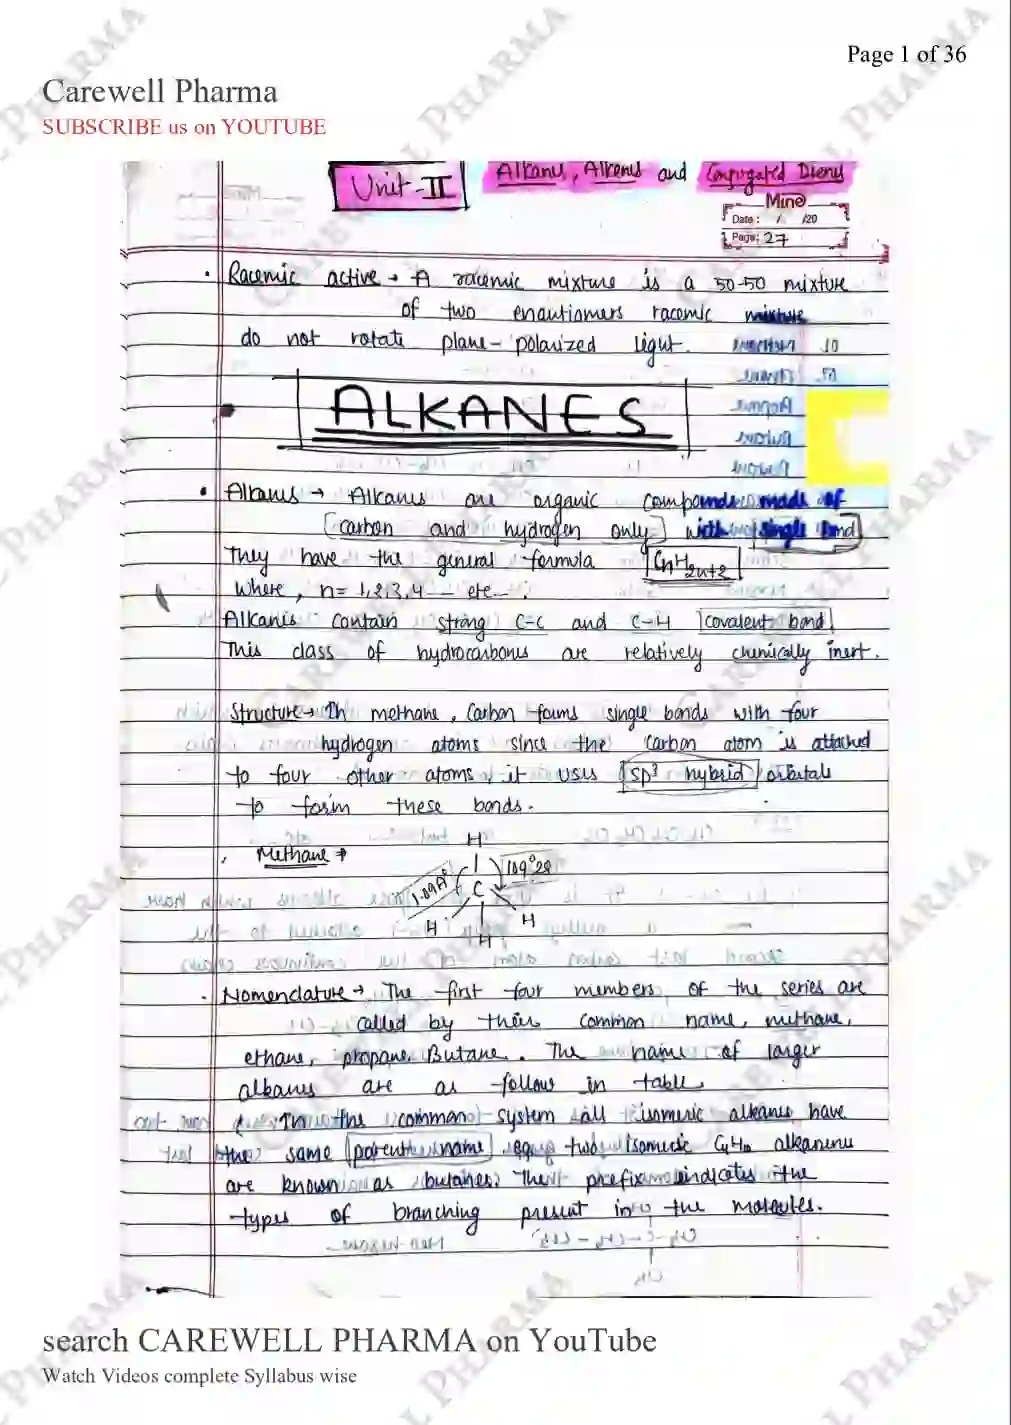 Page 1 of 36
Carewell Pharma
SUBSCRIBE us on YOUTUBE
Unit-II Alkanes, Alkenes and Conjugated Dienes
Mine
Date: / /20
Page: 27
Racemic active → A racemic mixture is a 50-50 mixture
of two enautiomers racomic mixture
do not rotate plane-polarized light.
ALKANES
Alkanes → Alkanes are organic compounds made of
carbon and hydrogen only with single bond
They have the general formula CnH2n+2
Where, n= 1,2,3,4 --- etc---.
Alkanes contain strong C-C and C-H covalent bond
This class of hydrocarbons are relatively chemically inert.
Structure → In methane, Carbon foums single bonds with four
hydrogen atoms since the Carbon atom is attached
to four other atoms, it uses sp3 hybrid orbitals
to form these bonds.
Methane →
H
1.09A° C 109°28
H H
H
Nomenclature → The first four members of the series are
called by their common name, methane,
ethane, propane, Butane. The name of larger
alkanes are as follow in table
In the common system all isomeric alkanes have
the same parent name eg two isomeric C4H10
are known as butanes. The prefix indicates the
types of branching present in the molecules.
search CAREWELL PHARMA on YouTube
Watch Videos complete Syllabus wise
CAREWELL PHARMA